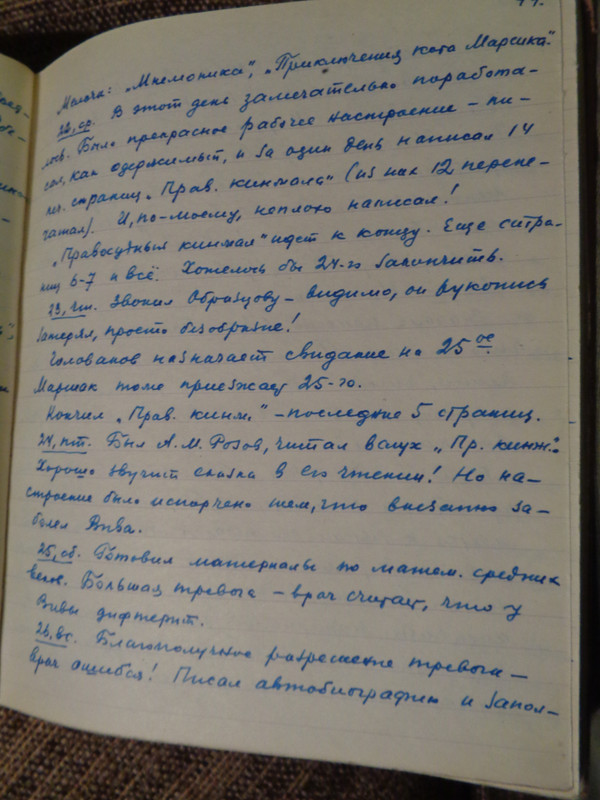 Мелочи: „Мнемоника“, „Приключения кота Марсика“.
22, ср. В этот день замечательно поработа-
лось. Было прекрасное рабочее настроение – пи-
сал, как одержимый, и за один день написал 14
печ. страниц „Прав. кинжала“ (из них 12 перепе-
чатал). И, по-моему, неплохо написал!
„Правосудный кинжал“ идет к концу. Еще стра-
ниц 6-7 и всё. Хотелось бы 24-го закончить.
23, чт. Звонил Образцову – видимо, он рукопись
затерял, просто безобразие!
Голованов назначает свидание на 25 ое.
Маршак тоже приезжает 25-го.
Кончил „Прав. кинж.“ – последние 5 страниц.
24, пт. Был А. М. Розов, читал вслух „Пр. кинж.“
Хорошо звучит сказка в его чтении! Но на-
строение было испорчено тем, что внезапно за-
болел Вива.
25, сб. Готовил материалы по матем. средних
веков. Большая тревога – врач считает, что у
Вивы дифтерит.
26, вс. Благополучное разрешение тревоги –
врач ошибся! Писал автобиографию и запол-